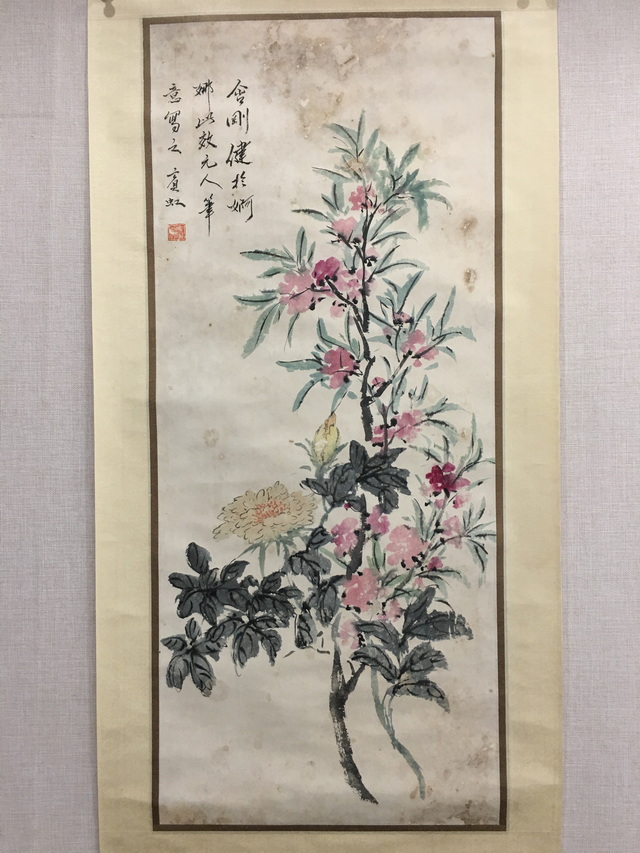 含剛健於婀
娜此效元人筆
意寫之 賓虹